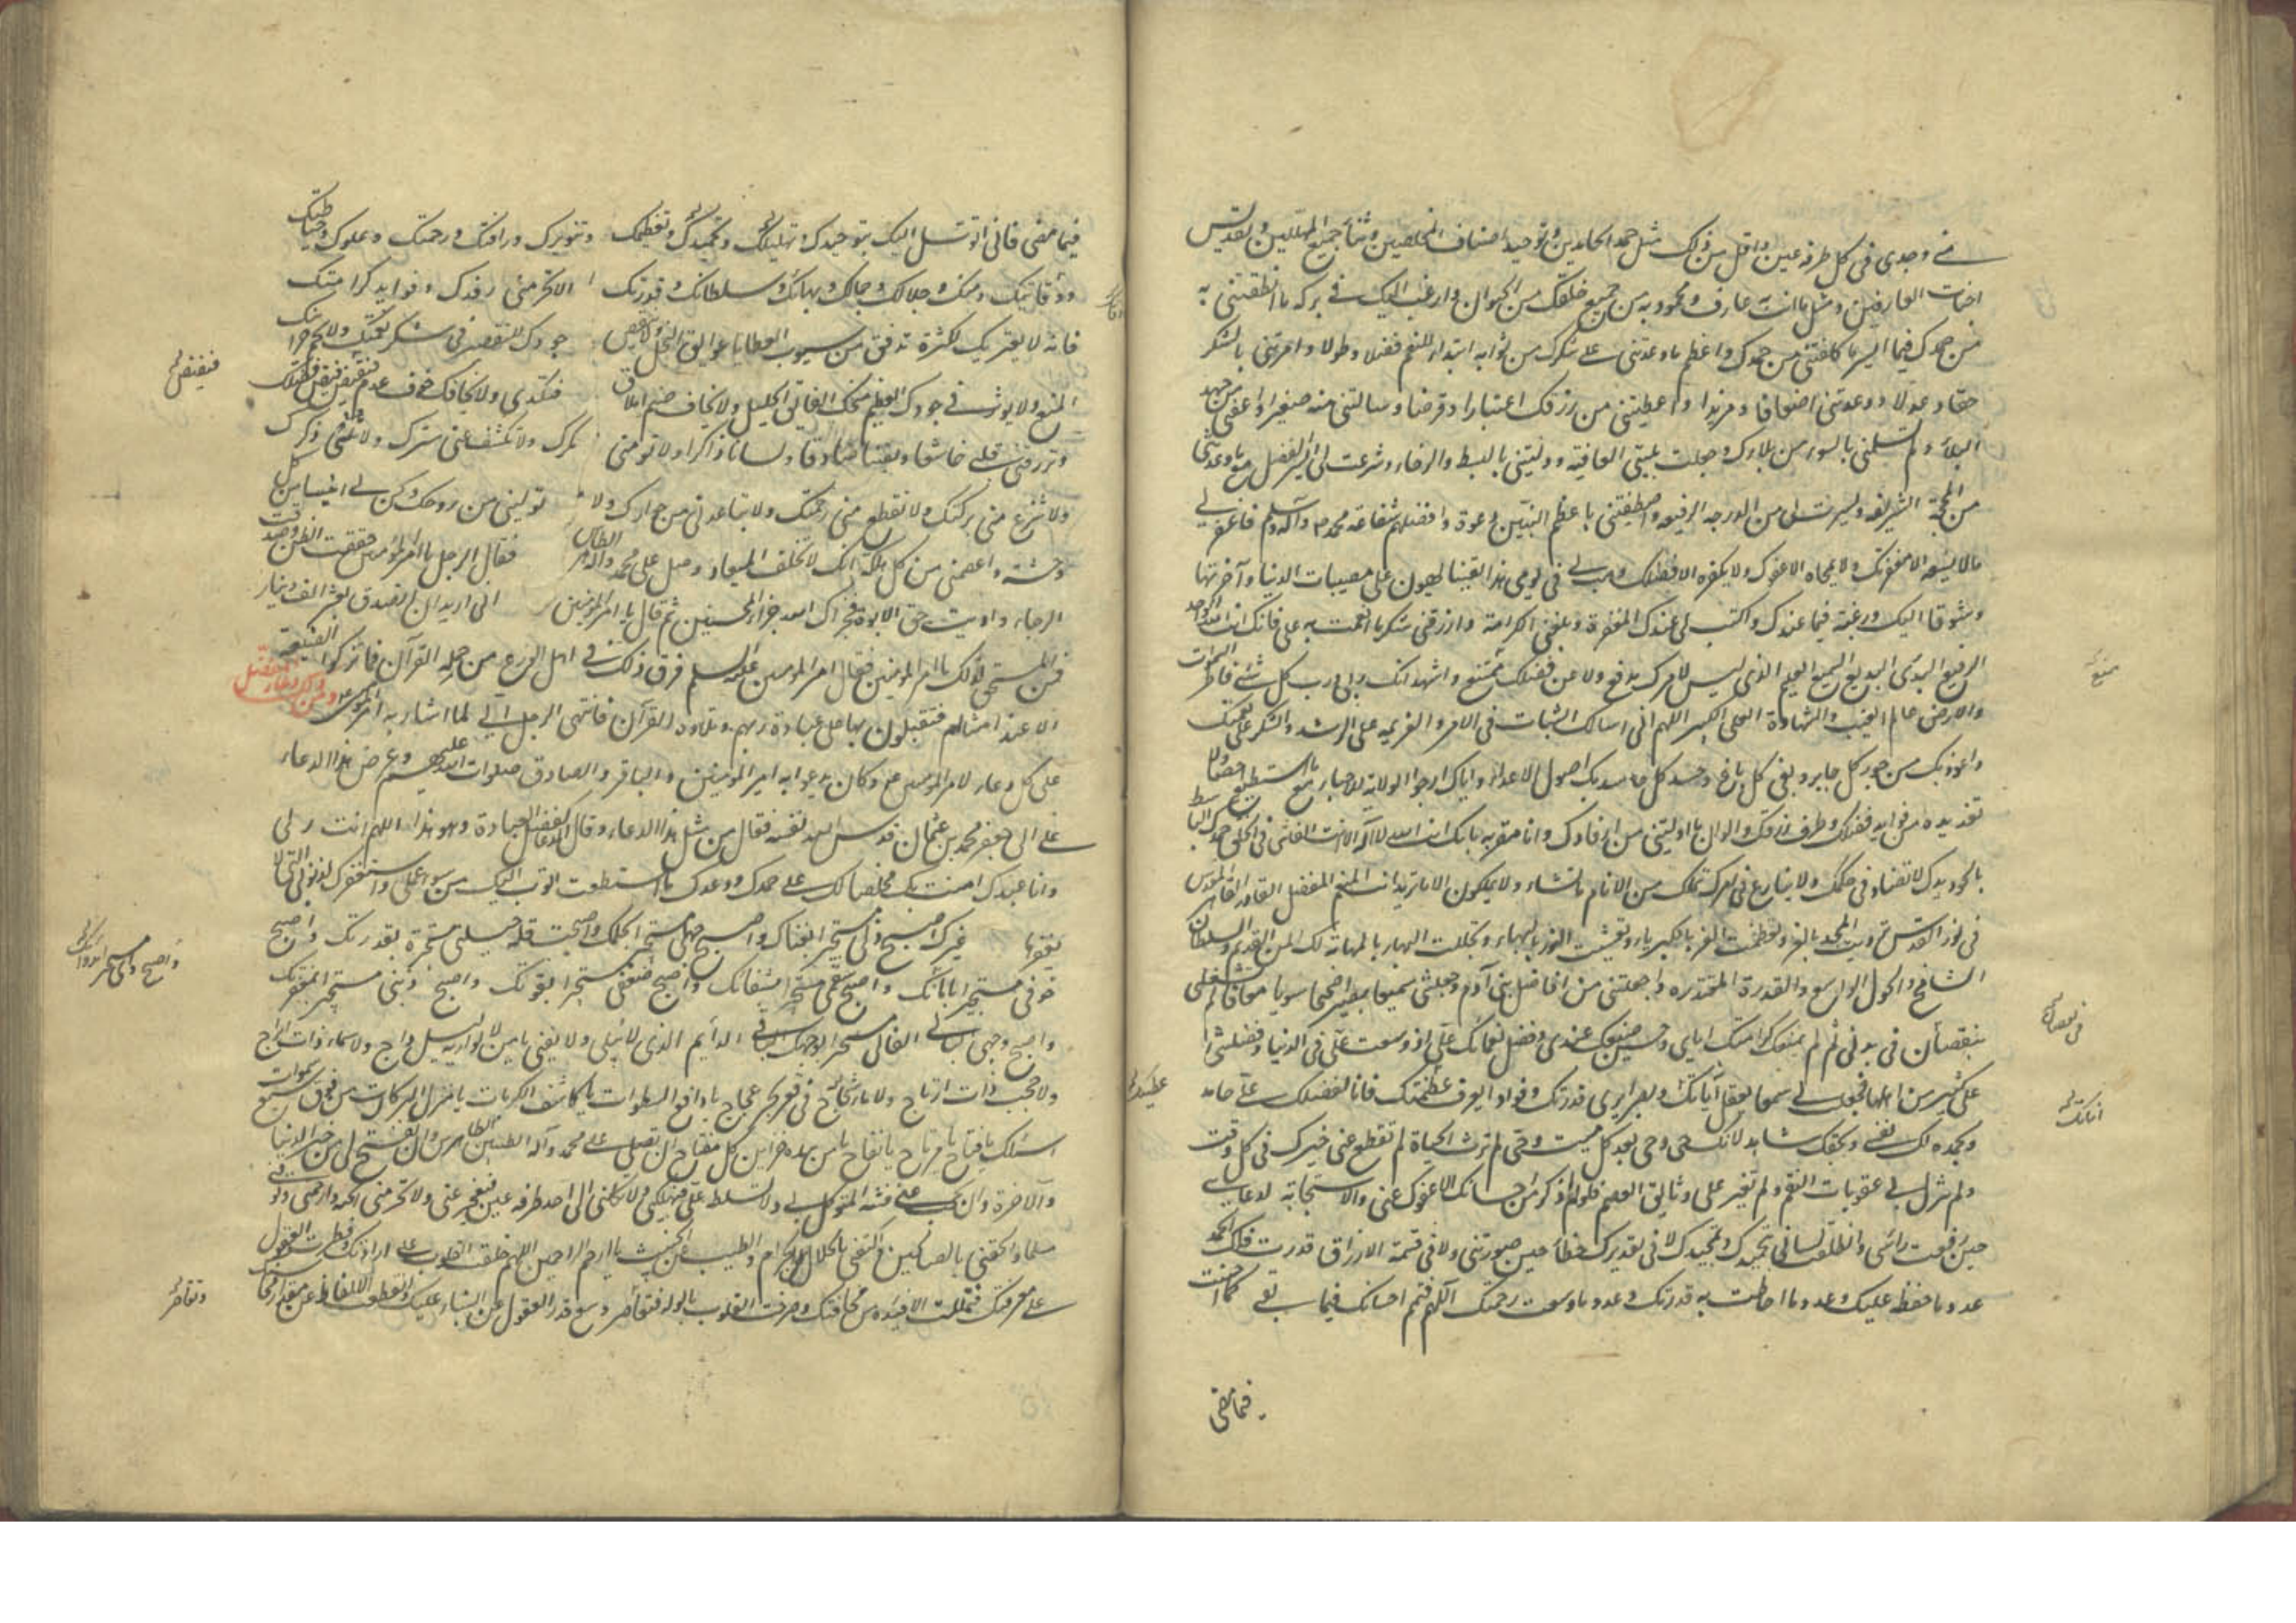 من وجدي في كل طرفة عين واقل من ذلك مثل حمد الحامدين وتوحيد اصناف المخلصين وثناء جميع المهللين وتقديس
العارفين ومثل ما انت به عارف ومحمود به من جميع خلقك من الحيوان وارغب اليك في بركة ما انطقتني به
من حمدك فما ايسر ما كلفتني من حمدك واعظم ما وعدتني على شكرك من ثوابه ابتداء للنعم فضلا وطولا وامرتني بالشكر
حقا وعدلا ووعدتني اضعافا ومزيدا واعطيتني من رزقك اعتبارا وقرضا وسالتني منه صغيرا واعفيتني من جهد
البلاء ولم تسلمني بالسوء من بلاءك وجعلت بليتي العافية ووليتني بالبسط والرخاء وشرعت لي ايسر الفضل مع ما وعدتني
من المحجة الشريفة ويسرت لي من الدرجة الرفيعة واصطفيتني باعظم النبيين دعوة وافضلهم شفاعة محمد ص وآله وسلم فاغفر لي
مالا يسعه الا مغفرتك ولا يمحاه الا عفوك ولا يكفره الا فضلك وهب لي في يومي هذا يقينا يهون علي مصيبات الدنيا واحزنها
وشوقا اليك ورغبة فيما عندك واكتب لي عندك المغفرة وبلغني الكرامة وارزقني شكر ما انعمت به علي فانك انت الله الواحد
الرفيع البدئ البديع السميع العليم الذي ليس لامرك مدفع ولا عن فضلك ممتنع واشهد انك ربي ورب كل شئ فاطر السموات
والارض عالم الغيب والشهادة العلي الكبير اللهم اني اسالك الثبات في الامر والعزيمة على الرشد والشكر على نعمتك
واعوذ بك من جور كل جاير وبغي كل باغ وحسد كل حاسد بك اصول على الاعداء واياك ارجو الولاية للاحباء مع ما لا استطيع احصاءه ولا
تعديده من فوايد فضلك وطرف رزقك والوان ما اوليتني من ارفادك وانا مقر به بانك انت الله لا اله الا انت الفاشي في الخلق حمدك الباسط
بالجود يدك لا تضاد في حكمك ولا تنازع في امرك تملك من الانام ما تشاء ولا يملكون الا ما تريد انت المنعم المفضل القادر القاهر المقدس
في نور القدس ترديت المجد بالعز وتعظمت العز بالكبرياء وتغشيت النور بالبهاء وتجللت البهاء بالمهابة لك المن القديم والسلطان
الشامخ والحول الواسع والقدرة المقتدرة اذ جعلتني من افاضل بني آدم وجعلتني سميعا بصيرا صحيحا سويا معافا لم تشغلني
بنقصان في بدني ثم لم يمنعك كرامتك اياي وحسن صنيعك عندي وفضل نعمائك علي اذ وسعت علي في الدنيا وفضلتني
على كثير من اهلها فجعلت لي سمعا يعقل آياتك وبصرا يرى قدرتك وفؤادا يعرف عظمتك فانا لفضلك علي حامد
وتحمده لك نفسي وبحقك شاهد لانك حي وحي بعد كل ميت وحي لم ترث الحياة لم تقطع عني خيرك في كل وقت
ولم تنزل بي عقوبات النقم ولم تغير علي وثائق العصم فلو لم اذكر من احسانك الا عفوك عني والاستجابة لدعائي
حين رفعت راسي وانطلقت لساني بتحميدك وتمجيدك لا في تقديرك خطأ حين صورتني ولا في قسمة الارزاق قدرت فلك الحمد
عدد ما حفظ عليك وعدد ما احاطت به قدرتك وعدد ما وسعت رحمتك اللهم فتمم احسانك فيما بقي كما احسنت
فيما مضى
فيما مضى فاني اتوسل اليك بتوحيدك وتهليلك وتمجيدك وتعظيمك وتنويرك ورافتك ورحمتك وعلوك وحياطتك
ووقايتك ومنك وجلالك وجمالك وبهائك وسلطانك وقدرتك الا تحرمني رفدك وفوايد كرامتك
فانه لا يعتريك لكثرة ما تدفق من سيوب العطايا عوايق البخل ولا ينقص جودك التقصير في شكر نعمتك ولا يجم خزائنك
المنع ولا يوثر في جودك العظيم منحك الفائق الجليل ولا تخاف ضيم املاق فتكدي ولا يخافك خوف عدم فينقص فيض فضلك
وترزقني قلبا خاشعا ويقينا صادقا ولسانا ذاكرا ولا تومني مكرك ولا تكشف عني سترك ولا تنسني ذكرك
ولا تنزع مني بركتك ولا تقطع مني رحمتك ولا تباعدني من جوارك ولا تؤيسني من روحك وكن لي انيسا من كل
وحشة واعصمني من كل هلكة انك لا تخلف الميعاد وصل على محمد وآله الطاهرين فقال الرجل يا امير المؤمنين حققت الظن وصدقت
الرجاء واديت حق الابوة فجزاك الله جزاء المحسنين ثم قال يا امير المؤمنين اني اريد ان اتصدق بعشرة الف دينار
فمن المستحق لذلك يا امير المؤمنين فقال امير المؤمنين عليه السلم فرق ذلك في اهل الورع من حملة القرآن فما تزكوا الصنيعة
الا عند امثالهم فيتقوون بها على عبادة ربهم وتلاوة القرآن فانتهى الرجل الى ما اشار به امير المؤمنين ع
على كل دعاء لامير المؤمنين ع وكان يدعوا به امير المؤمنين والباقر والصادق صلوات الله عليهم وعرض هذا الدعاء
على ابي جعفر محمد بن عثمان قدس الله نفسه فقال من مثل هذا الدعاء وقال الدعاء كفضل العبادة وهو هذا اللهم انت ربي
وانا عبدك امنت بك مخلصا لك على عهدك ووعدك ما استطعت اتوب اليك من سوء عملي واستغفرك لذنوبي التي لا
يغفرها غيرك اصبح ذلي مستجيرا بغناك واصبح جهلي مستجيرا بحلمك واصبحت قلة حيلتي مستجيرة بقدرتك واصبح
خوفي مستجيرا بامانك واصبح سقمي مستجيرا بشفائك واصبح ضعفي مستجيرا بقوتك واصبح ذنبي مستجيرا بمغفرتك
واصبح وجهي البالي الفاني مستجيرا بوجهك الباقي الدايم الذي لا يبلى ولا يفنى يا من لا يواريه ليل داج ولا سماء ذات ابراج
ولا حجب ذات ارتاج ولا ماء ثجاج في قعر بحر عجاج يا دافع السطوات يا كاشف الكربات يا منزل البركات من فوق سبع سموات
اسئلك يا فتاح يا مرتاح يا نفاح يا من بيده خزاين كل مفتاح ان تصلي على محمد وآله الطيبين الطاهرين وان تفتح لي من خير الدنيا
والآخرة وان تحجب عني فتنة الموكل بي ولا تسلطه علي فيهلكني ولا تكلني الى احد طرفة عين فيعجز عني ولا تحرمني الجنة وارحمني وتوفني
مسلما والحقني بالصالحين واكففني بالحلال عن الحرام والطيب عن الخبيث يا ارحم الراحمين اللهم خلقت القلوب على ارادتك وفطرت العقول
على معرفتك فتململت الافئدة من مخافتك وصرخت القلوب بالوله فتقاصر وسع قدر العقول عن الثناء عليك وانقطعت الالفاظ عن مقدار محاسنك